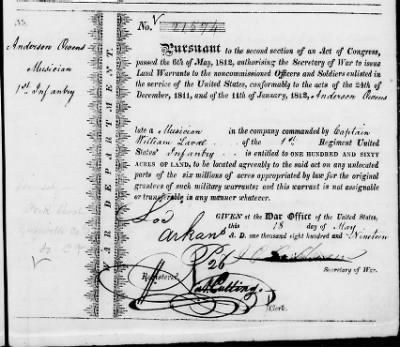 No.
Anderson Owens
Musician
1st Infantry
WAR DEPARTMENT.
No. 21574
Pursuant to the second section of an Act of Congress,
passed the 6th of May, 1812, authorising the Secretary of War to issue
Land Warrants to the noncommissioned Officers and Soldiers enlisted in
the service of the United States, conformably to the acts of the 24th of
December, 1811, and of the 11th of January, 1812, Anderson Owens
late a Musician in the company commanded by Captain
William Laval of the 1st Regiment United
States Infantry is entitled to ONE HUNDRED AND SIXTY
ACRES OF LAND, to be located agreeably to the said act on any unlocated
parts of the six millions of acres appropriated by law for the original
grantees of such military warrants; and this warrant is not assignable
or transferable in any manner whatever.
GIVEN at the War Office of the United States,
this 18 day of May
A. D. one thousand eight hundred and Nineteen
Arkans
Secretary of War.
Registered
Cutting
Clerk.